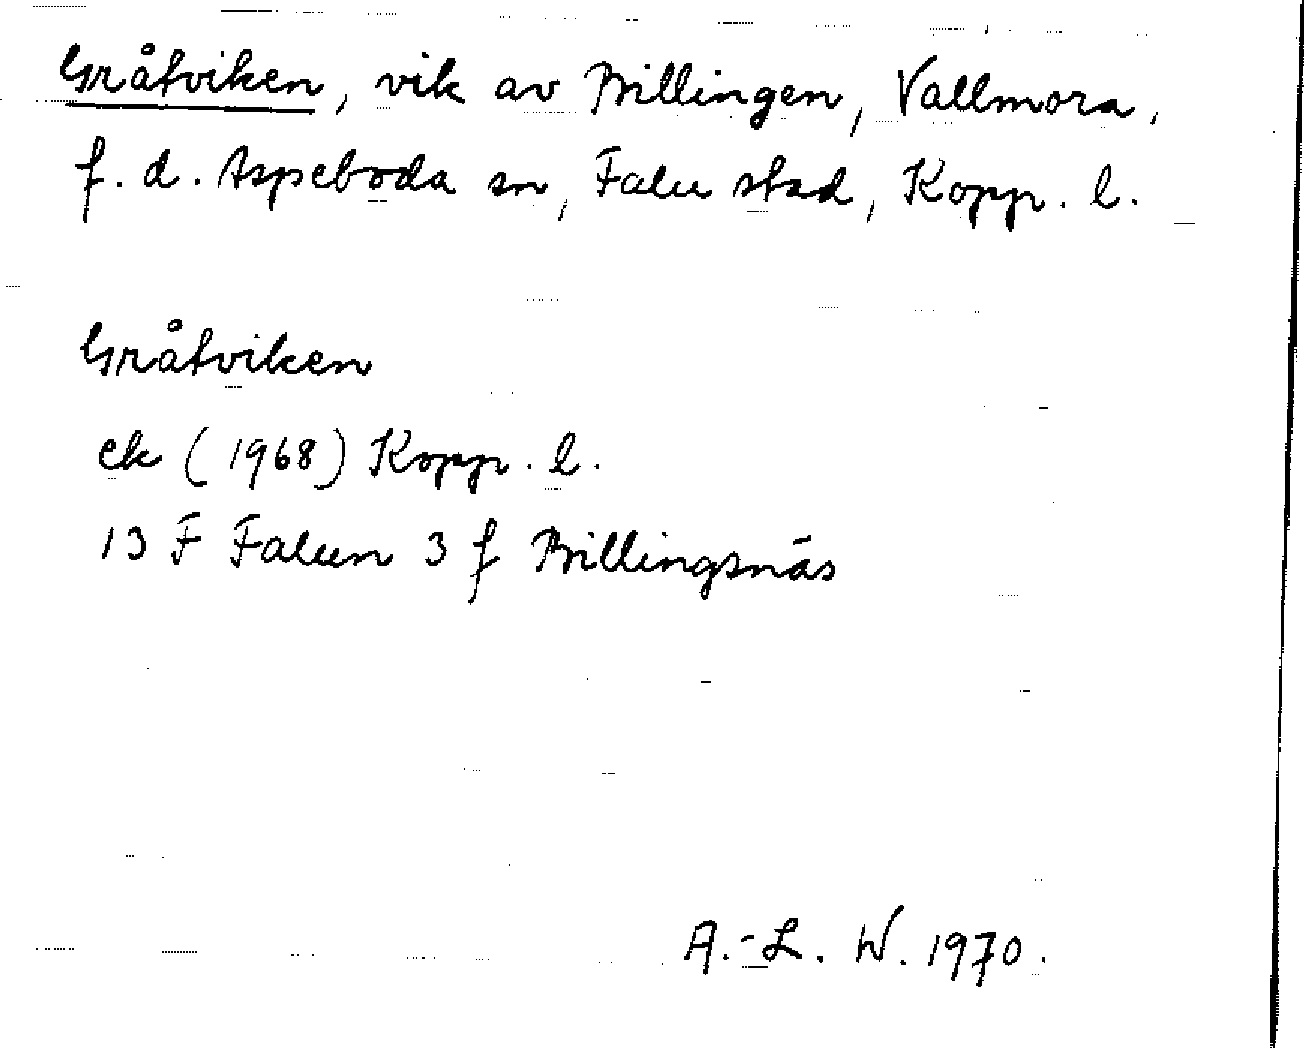 Gråtviken, vik av Billingen, Vallmora,
f. d. Aspeboda sn, Falu stad, Kopp. l.
Gråtviken
ek (1968) Kopp. l.
13 F Falun 3 f Billingsnäs
A.-L. W. 1970.